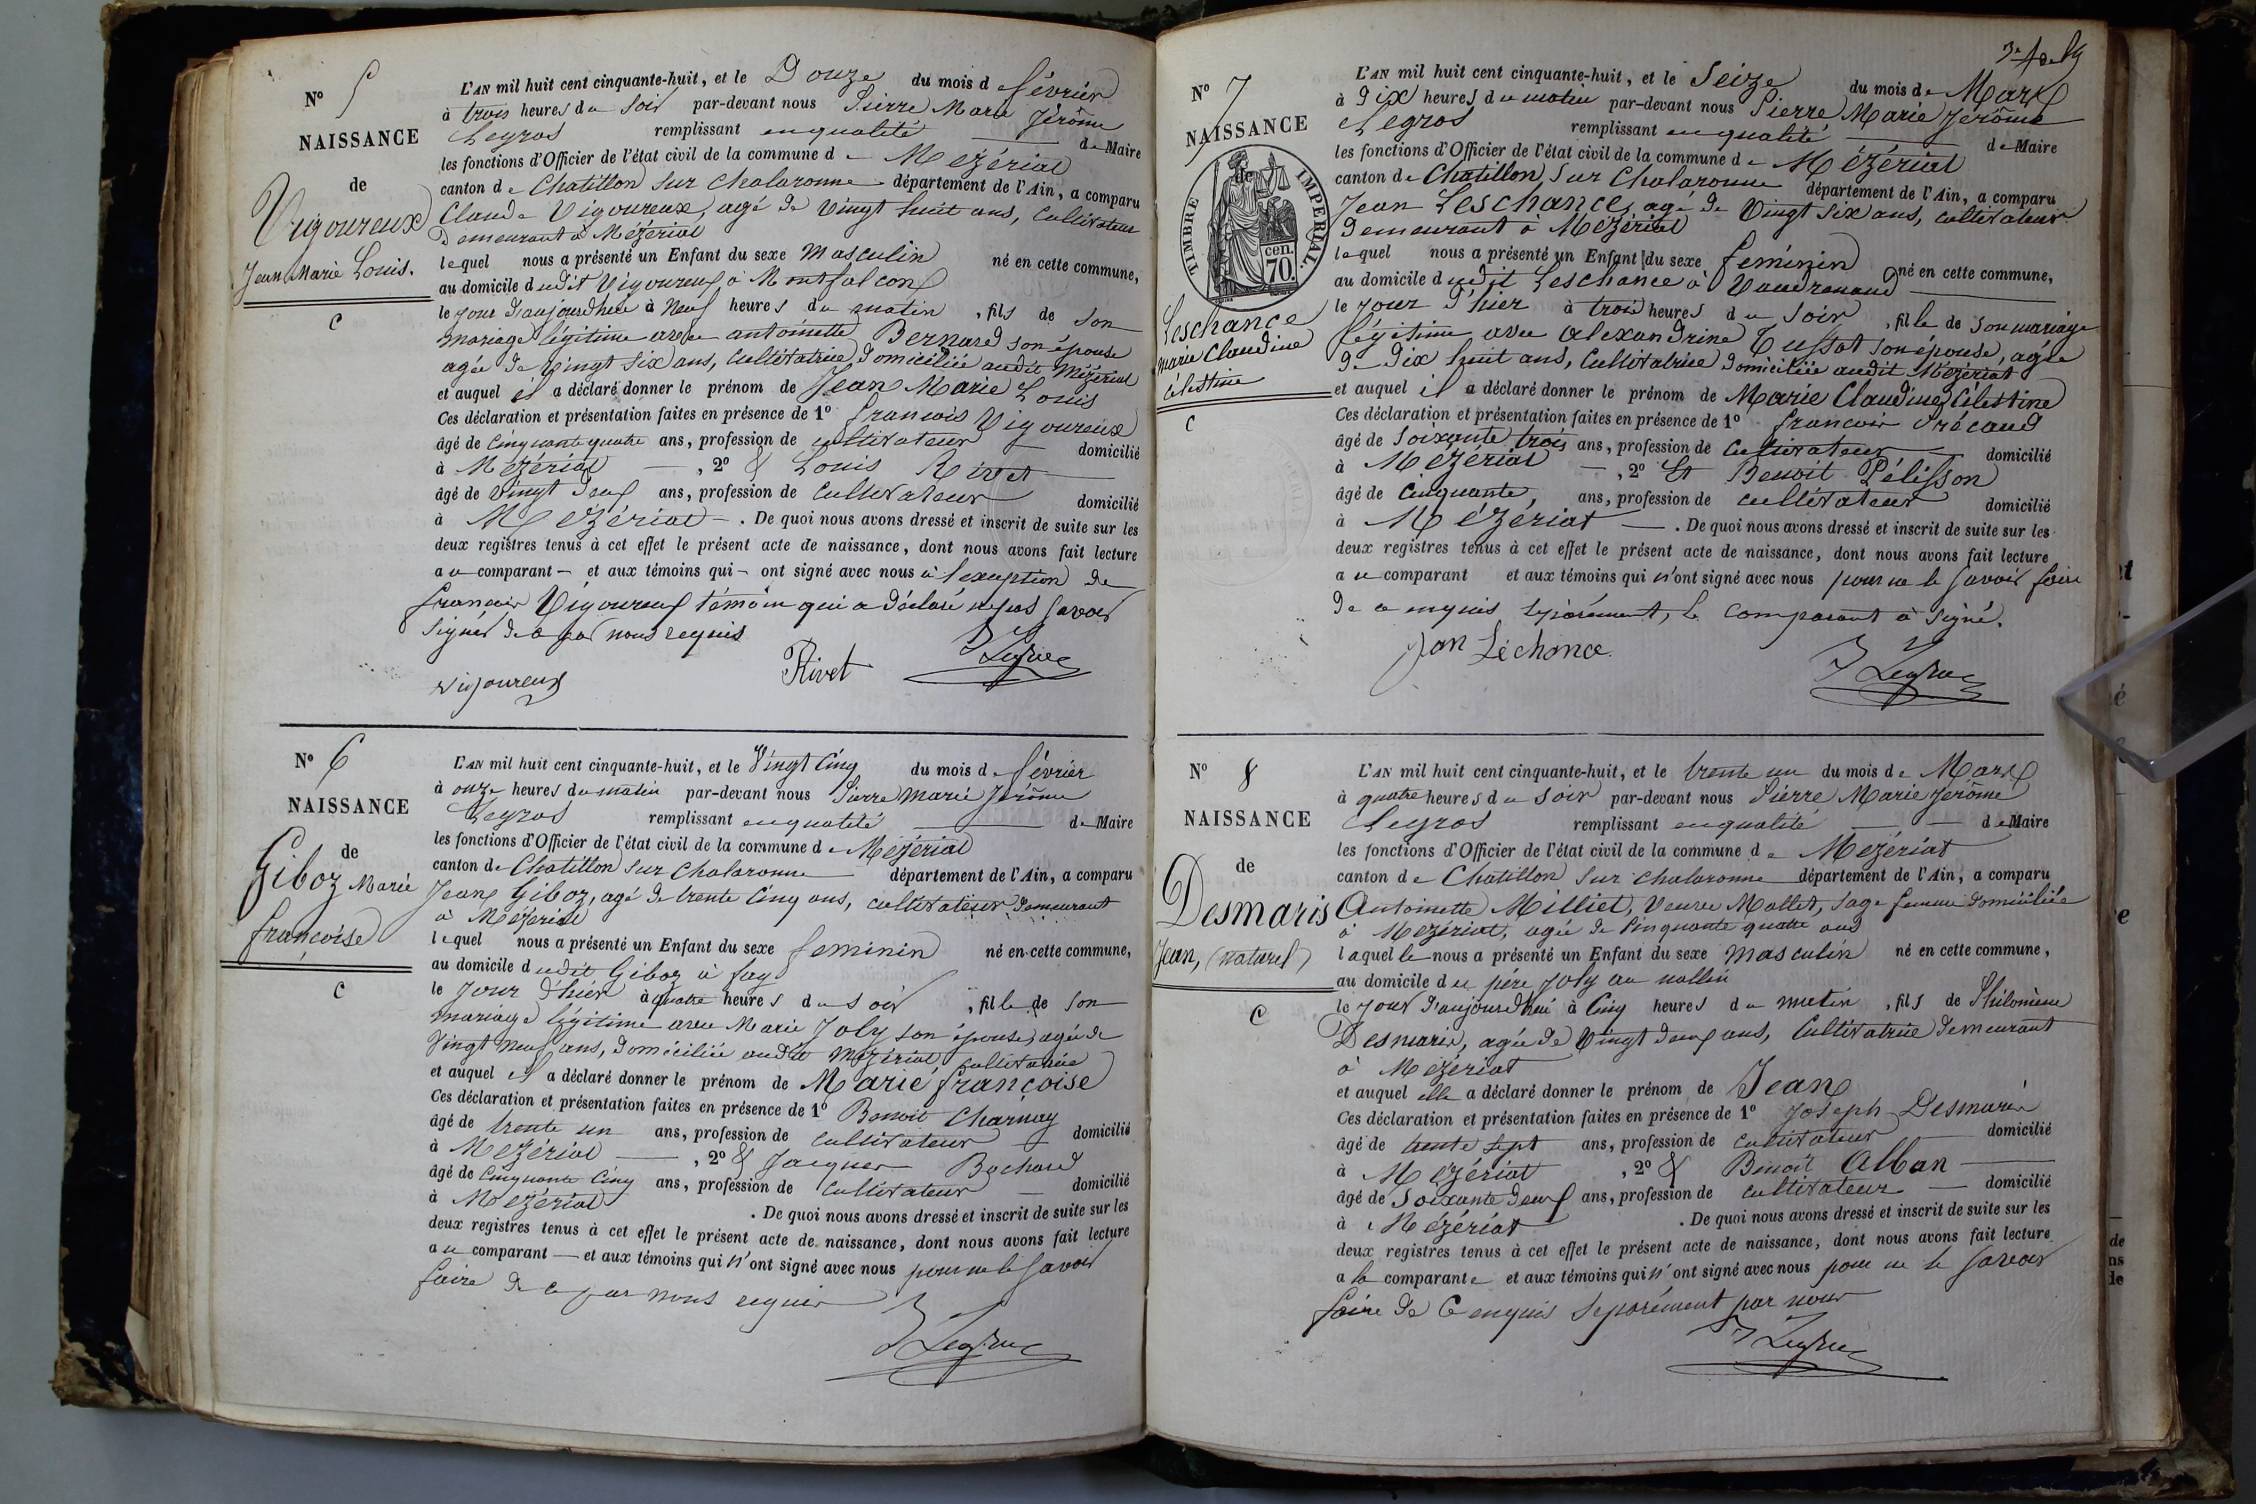 N° 5
NAISSANCE
de
Vigoureux
Jean Marie Louis.
C
L'AN mil huit cent cinquante-huit, et le Douze du mois de février
à trois heures du soir par-devant nous Pierre Marie Jérôme
Legros remplissant en qualité de Maire
les fonctions d'Officier de l'état civil de la commune de Mézériat
canton de Chatillon sur Chalaronne département de l'Ain, a comparu
Claude Vigoureux, agé de vingt huit ans, Cultivateur
Demeurant à Mézériat
lequel nous a présenté un Enfant du sexe masculin né en cette commune,
au domicile dudit Vigoureux à Montfalcon
le jour d'aujourdhui à Neuf heures du matin, fils de son
mariage légitime avec antoinette Bernard son épouse
agée de vingt six ans, Cultivatrice, domiciliée audit Mézériat
et auquel il a déclaré donner le prénom de Jean Marie Louis
Ces déclaration et présentation faites en présence de 1° francois Vigoureux
âgé de Cinquante quatre ans, profession de cultivateur domicilié
à Mézériat, 2° & Louis Rivet
âgé de vingt deux ans, profession de Cultivateur domicilié
à Mézériat. De quoi nous avons dressé et inscrit de suite sur les
deux registres tenus à cet effet le présent acte de naissance, dont nous avons fait lecture
au comparant et aux témoins qui ont signé avec nous à l'exception de
francois Vigoureux témoin qui a déclaré ne pas savoir
signer de ce par nous requis
Vigoureux Rivet J Legros
N° 6
NAISSANCE
de
Giboz Marie
françoise
C
L'AN mil huit cent cinquante-huit, et le Vingt Cinq du mois de février
à onze heures du matin par-devant nous Pierre Marie Jérôme
Legros remplissant en qualité de Maire
les fonctions d'Officier de l'état civil de la commune de Mézériat
canton de Chatillon sur Chalaronne département de l'Ain, a comparu
Jean Giboz, agé de trente Cinq ans, cultivateur demeurant
à Mézériat
lequel nous a présenté un Enfant du sexe feminin né en cette commune,
au domicile dudit Giboz à fay
le jour d'hier à quatre heures du soir, fille de son
mariage légitime avec Marie Joly son épouse, agée de
Vingt neuf ans, domiciliée audit Mézériat, cultivatrice
et auquel il a déclaré donner le prénom de Marie françoise
Ces déclaration et présentation faites en présence de 1° Benoit Charnay
âgé de trente un ans, profession de Cultivateur domicilié
à Mézériat, 2° & Jacques Bochard
âgé de Cinquante Cinq ans, profession de Cultivateur domicilié
à Mézériat. De quoi nous avons dressé et inscrit de suite sur les
deux registres tenus à cet effet le présent acte de naissance, dont nous avons fait lecture
au comparant et aux témoins qui n'ont signé avec nous pour ne le savoir
faire de ce par nous requis
J Legros
N° 7
NAISSANCE
de
TIMBRE IMPERIAL.
cen.
70.
Leschance
marie Claudine
célestine
C
L'AN mil huit cent cinquante-huit, et le Seize du mois de Mars
à Dix heures du matin par-devant nous Pierre Marie Jérôme
Legros remplissant en qualité de Maire
les fonctions d'Officier de l'état civil de la commune de Mézériat
canton de Chatillon, sur Chalaronne département de l'Ain, a comparu
Jean Leschance, agé de Vingt six ans, cultivateur
demeurant à Mézériat
lequel nous a présenté un Enfant du sexe feminin né en cette commune,
au domicile dudit Leschance à Vaudrenand
le jour d'hier à trois heures du soir, fille de son mariage
légitime avec alexandrine Tussot son épouse, agée
de dix huit ans, Cultivatrice domiciliée audit Mézériat
et auquel il a déclaré donner le prénom de Marie Claudine Célestine
Ces déclaration et présentation faites en présence de 1° francois
âgé de soixante trois ans, profession de Cultivateur domicilié
à Mézériat, 2° Et Benoit Pélisson
âgé de cinquante, ans, profession de cultivateur domicilié
à Mézériat. De quoi nous avons dressé et inscrit de suite sur les
deux registres tenus à cet effet le présent acte de naissance, dont nous avons fait lecture
au comparant et aux témoins qui n'ont signé avec nous pour ne le savoir faire
de ce enquis séparément, le comparant à signé.
Jan Léchance. J Legros
N° 8
NAISSANCE
de
Desmaris
Jean, (naturel)
C
L'AN mil huit cent cinquante-huit, et le trente un du mois de Mars
à quatre heures du soir par-devant nous Pierre Marie Jérôme
Legros remplissant en qualité de Maire
les fonctions d'Officier de l'état civil de la commune de Mézériat
canton de Chatillon sur Chalaronne département de l'Ain, a comparu
Antoinette Milliet, Veuve Mallet, sage femme domiciliée
à Mézériat, agée de Cinquante quatre ans
laquelle nous a présenté un Enfant du sexe masculin né en cette commune,
au domicile du père Joly au
le jour d'aujourd'hui à Cinq heures du matin, fils de Philomène
Desmaris, agée de Vingt deux ans, Cultivatrice demeurant
à Mézériat
et auquel elle a déclaré donner le prénom de Jean
Ces déclaration et présentation faites en présence de 1° Joseph Desmaris
âgé de trente sept ans, profession de cultivateur domicilié
à Mézériat, 2° & Benoit Alban
âgé de Soixante deux ans, profession de cultivateur domicilié
à Mézériat. De quoi nous avons dressé et inscrit de suite sur les
deux registres tenus à cet effet le présent acte de naissance, dont nous avons fait lecture
a la comparante et aux témoins qui n'ont signé avec nous pour ne le savoir
faire de Ce enquis séparément par nous
J Legros